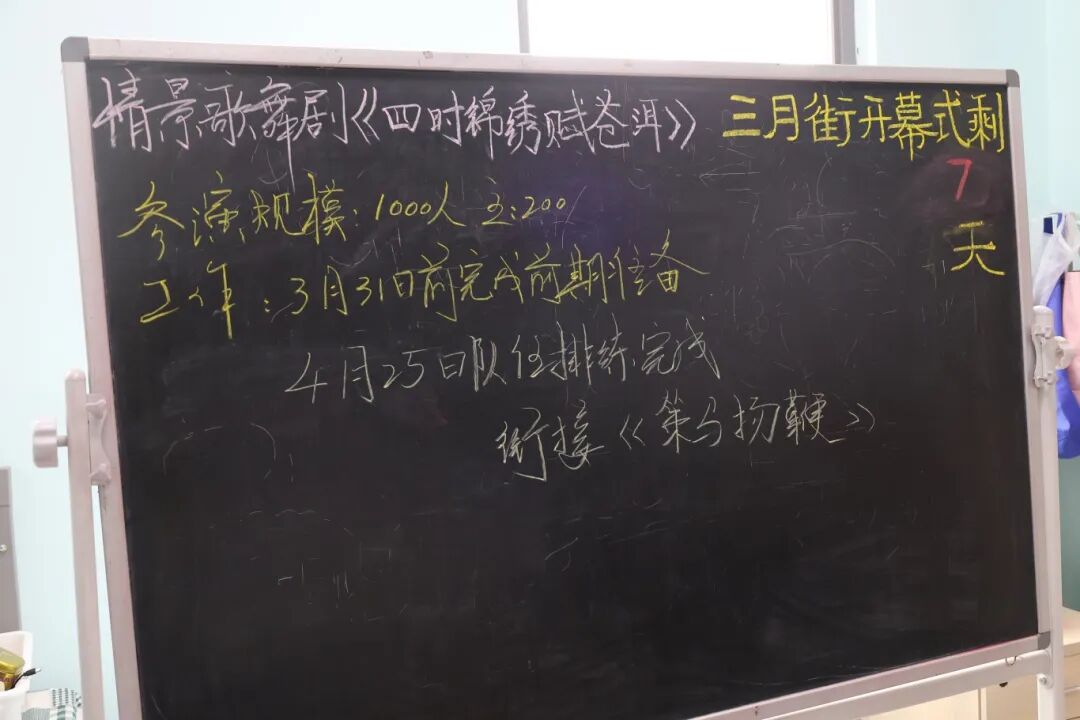 情景歌舞剧《四时锦绣赋苍洱》
三月街开幕式剩
7
天
参演规模:1000人 主:200人
工作:3月31日前完成前期准备
4月25日队伍排练完成
衔接《策马扬鞭》